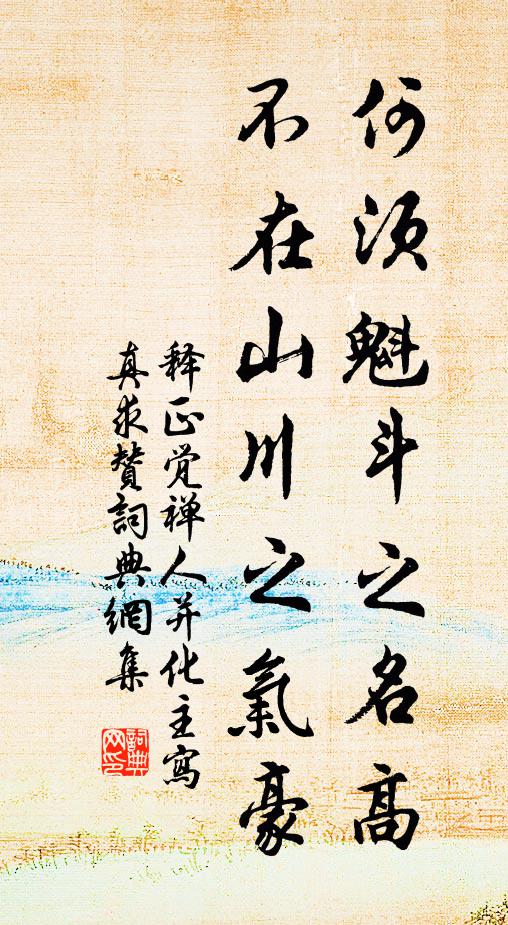 何须魁斗之名高
不在山川之氣豪
释正觉禅人并化主寫
真求赞詞典網集
詞典网印